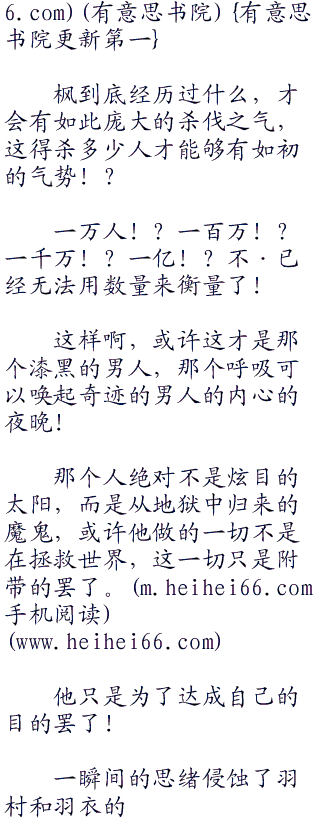 6.com)(有意思书院){有意思
书院更新第一}
枫到底经历过什么，才
会有如此庞大的杀伐之气，
这得杀多少人才能够有如初
的气势！？
一万人！？一百万！？
一千万！？一亿！？不·已
经无法用数量来衡量了！
这样啊，或许这才是那
个漆黑的男人，那个呼吸可
以唤起奇迹的男人的内心的
夜晚！
那个人绝对不是炫目的
太阳，而是从地狱中归来的
魔鬼，或许他做的一切不是
在拯救世界，这一切只是附
带的罢了。(m.heihei66.com
手机阅读)
(www.heihei66.com)
他只是为了达成自己的
目的罢了！
一瞬间的思绪侵蚀了羽
村和羽衣的